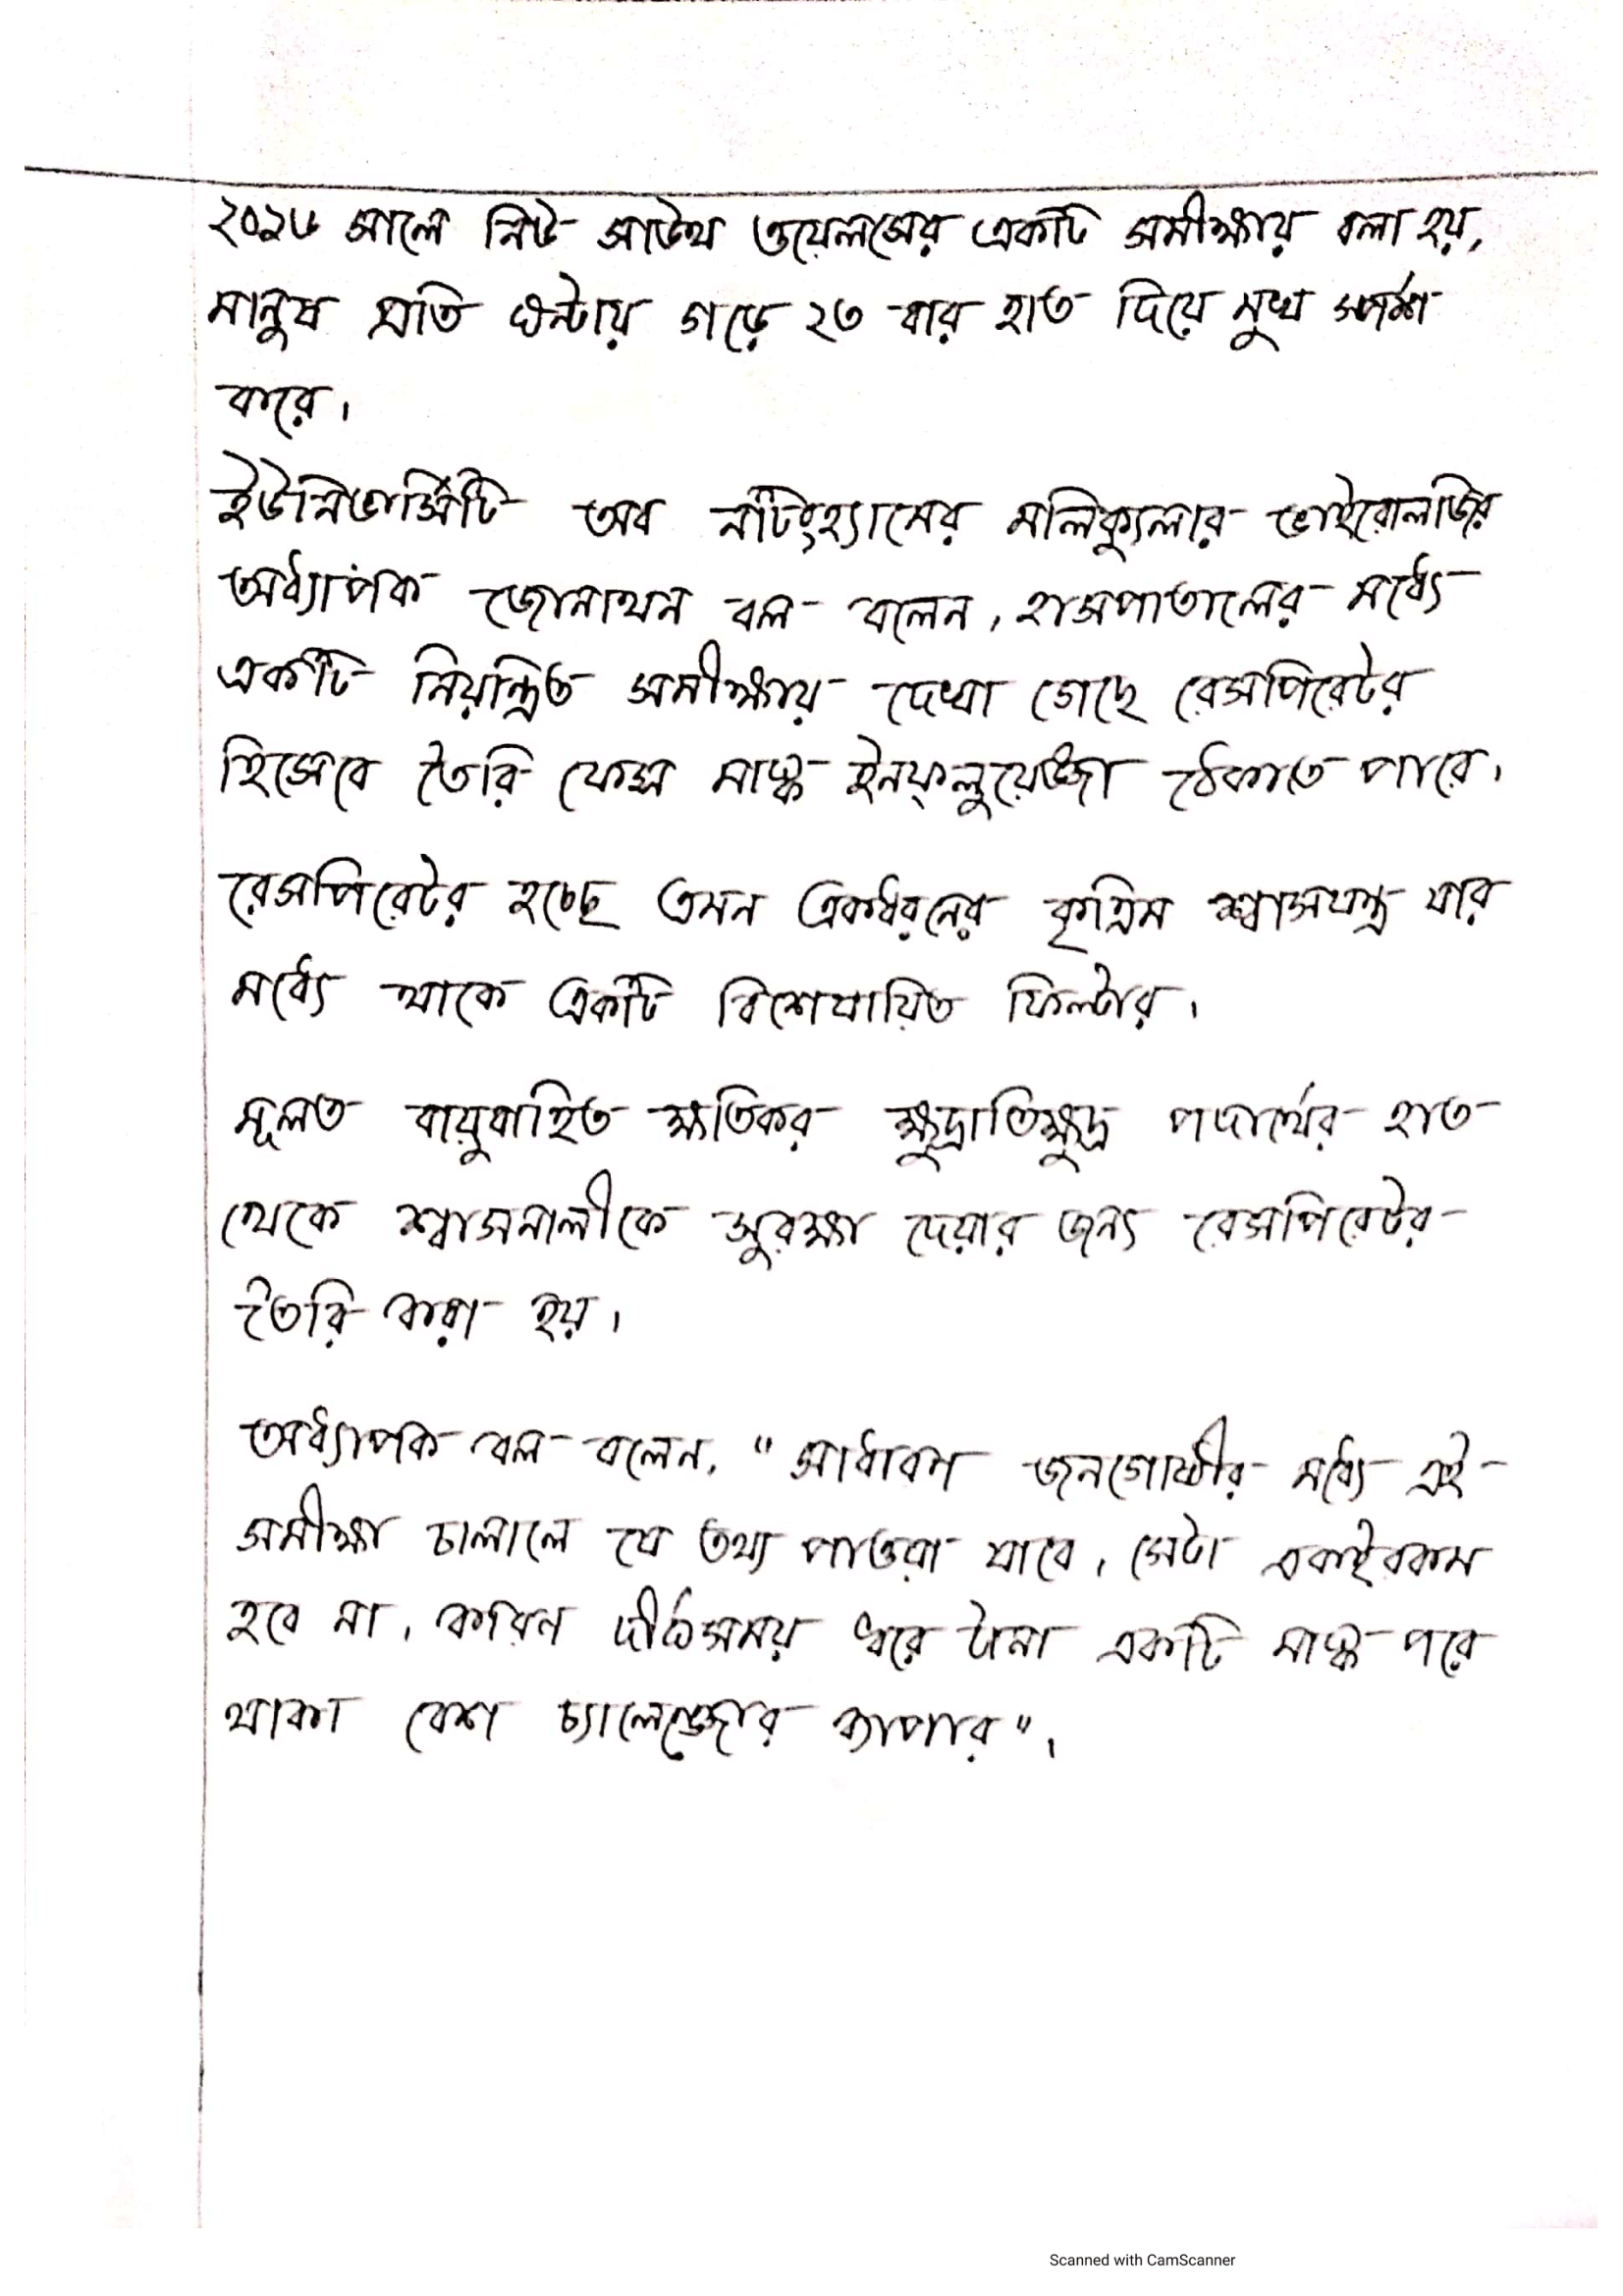 ২০১৬ সালে নিউ সাউথ ওয়েলসের একটি সমীক্ষায় বলা হয়,
মানুষ প্রতি ঘন্টায় গড়ে ২৩ বার হাত দিয়ে মুখ স্পর্শ
করে।
ইউনিভার্সিটি অব নটিংহ্যামের মলিক্যুলার ভাইরোলজির
অধ্যাপক জোনাথন বল বলেন, হাসপাতালের মধ্যে
একটি নিয়ন্ত্রিত সমীক্ষায় দেখা গেছে রেসপিরেটর
হিসেবে তৈরি ফেস মাস্ক ইনফ্লুয়েঞ্জা ঠেকাতে পারে।
রেসপিরেটর হচ্ছে এমন একধরনের কৃত্রিম শ্বাসযন্ত্র যার
মধ্যে থাকে একটি বিশেষায়িত ফিল্টার।
মূলত বায়ুবাহিত ক্ষতিকর ক্ষুদ্রাতিক্ষুদ্র পদার্থের হাত
থেকে শ্বাসনালীকে সুরক্ষা দেয়ার জন্য রেসপিরেটর
তৈরি করা হয়।
অধ্যাপক বল বলেন, "সাধারণ জনগোষ্ঠীর মধ্যে এই
সমীক্ষা চালালে যে তথ্য পাওয়া যাবে, সেটা একইরকম
হবে না, কারণ দীর্ঘসময় ধরে টানা একটি মাস্ক পরে
থাকা বেশ চ্যালেঞ্জের ব্যাপার"।
Scanned with CamScanner